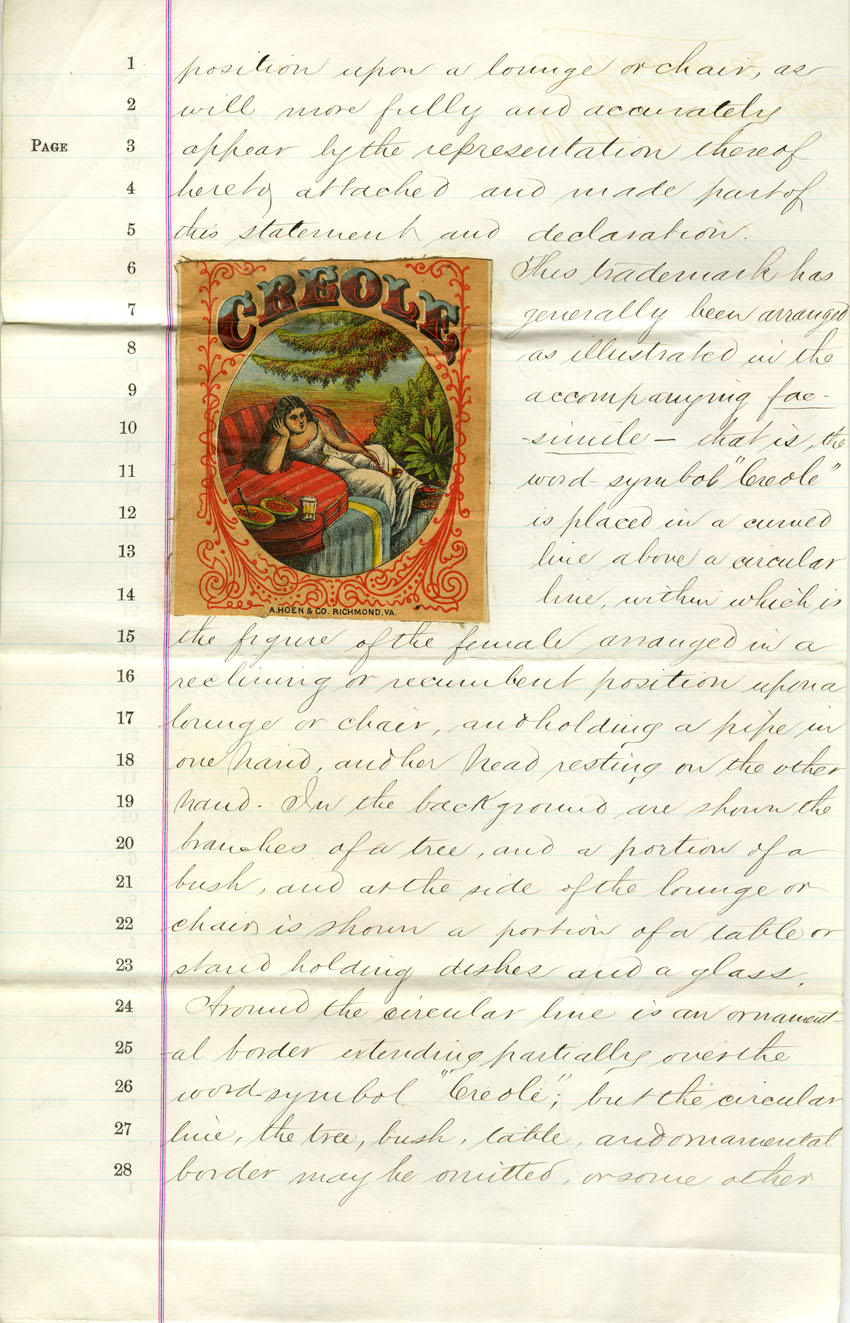 1 position upon a lounge or chair, as
2 will more fully and accurately
PAGE 3 appear by the representation thereof
4 hereto attached and made part of
5 this statement and declaration.
6 This trademark has
7 generally been arranged
8 as illustrated in the
9 accompanying fac-
10 -simile – that is, the
11 word-symbol "Creole"
12 is placed in a curved
13 line above a circular
14 line, within which is
CREOLE
A. HOEN & CO. RICHMOND, VA.
15 the figure of the female arranged in a
16 reclining or recumbent position upon a
17 lounge or chair, and holding a pipe in
18 one hand, and her head resting on the other
19 hand. In the background are shown the
20 branches of a tree, and a portion of a
21 bush, and at the side of the lounge or
22 chair is shown a portion of a table or
23 stand holding dishes and a glass.
24 Around the circular line is an ornament-
25 -al border extending partially over the
26 word-symbol "Creole"; but the circular
27 line, the tree, bush, table, and ornamental
28 border may be omitted, or some other